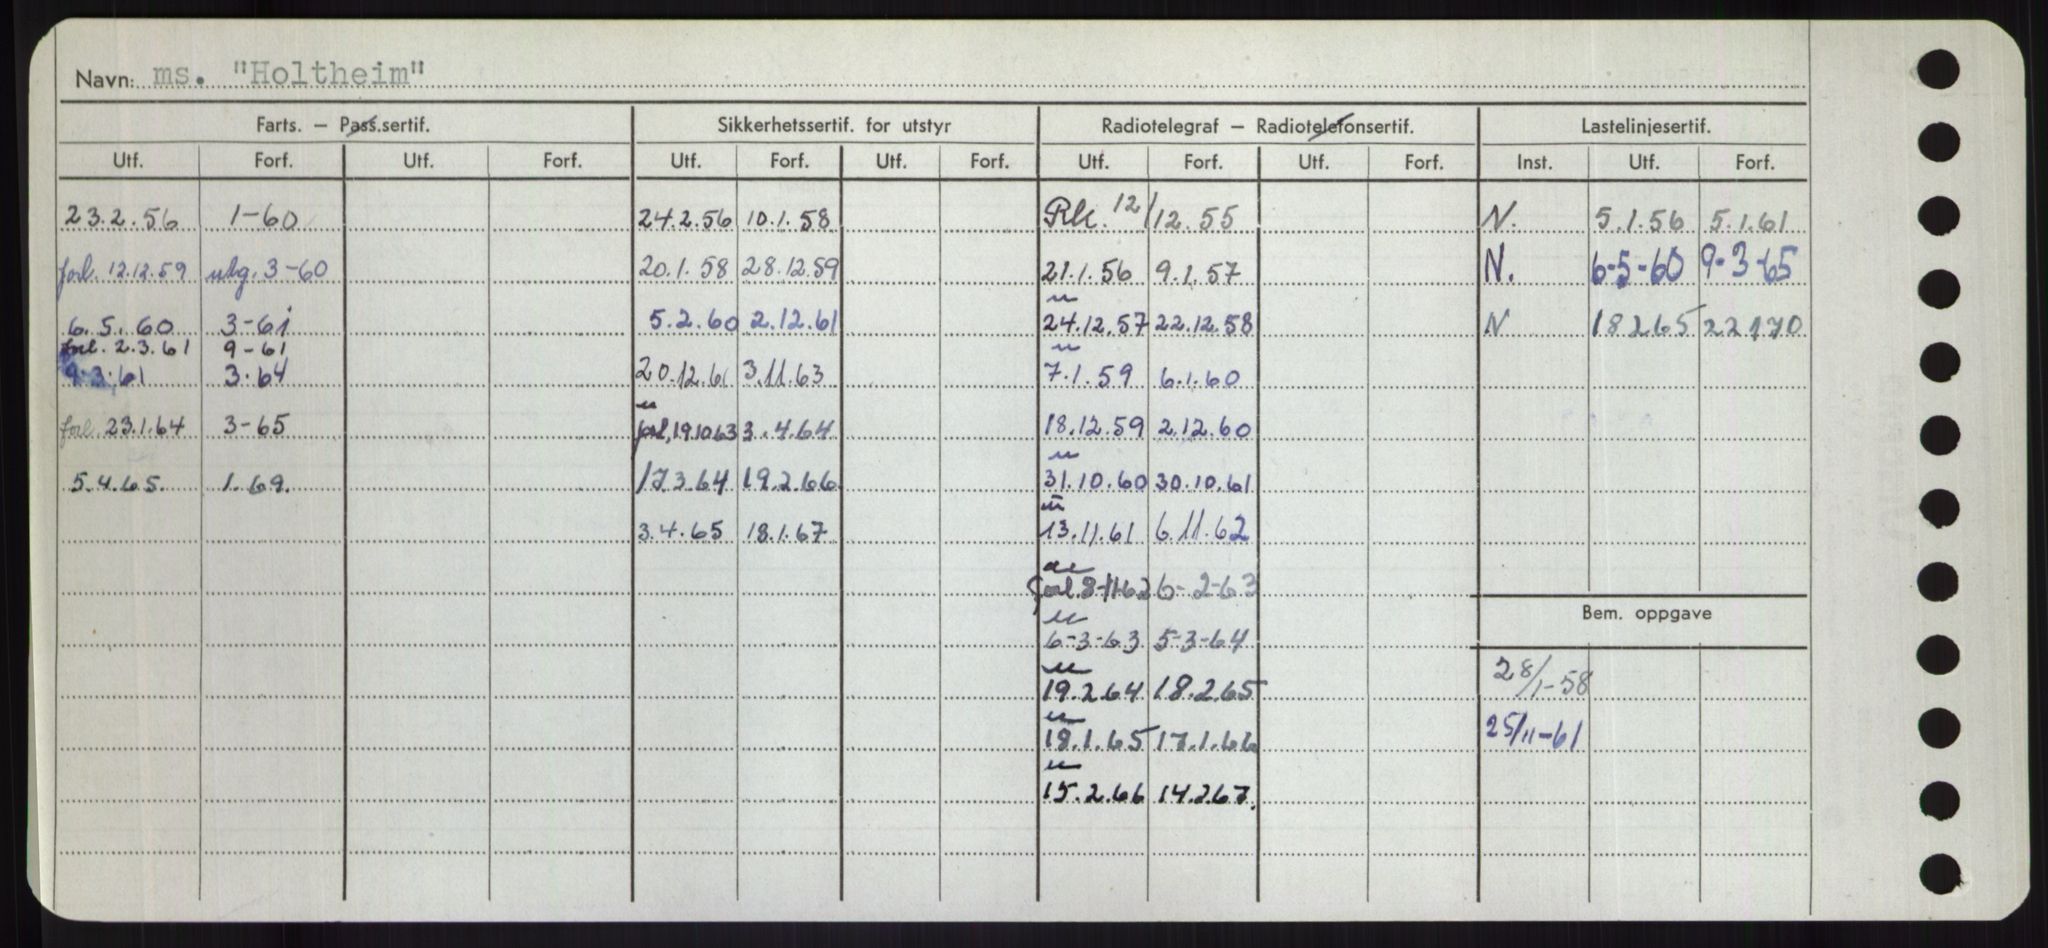 Navn: ms. "Holtheim"
Farts. — Pass.sertif. Sikkerhetssertif. for utstyr Radiotelegraf — Radiotelefonsertif. Lastelinjesertif.
Utf. Forf. Utf. Forf. Utf. Forf. Utf. Forf. Utf. Forf. Utf. Forf. Inst. Utf. Forf.
23.2.56 1-60 24.2.56 10.1.58 Rk. 12/12.55 N. 5.1.56 5.1.61
forl. 12.12.59 utg. 3-60 20.1.58 28.12.59 21.1.56 9.1.57 N. 6-5-60 9-3-65
6.5.60 3-61 5.2.60 2.12.61 24.12.57 22.12.58 N 18265 22170
forl. 2.3.61 9-61
9.3.61 3.64 20.12.61 3.11.63 7.1.59 6.1.60
forl. 23.1.64 3-65 forl. 19.10.63 3.4.64 18.12.59 2.12.60
5.4.65. 1.69. 17.3.64 19.2.66 31.10.60 30.10.61
3.4.65 18.1.67 13.11.61 6.11.62
forl. 8-11-62 6-2-63
Bem. oppgave
6-3-63 5-3-64
28/1-58
19.2.64 18.2.65
25/11-61
18.1.65 17.1.66
15.2.66 14.2.67.